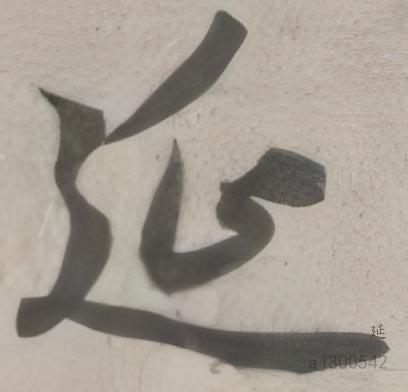 延
延
ai300542